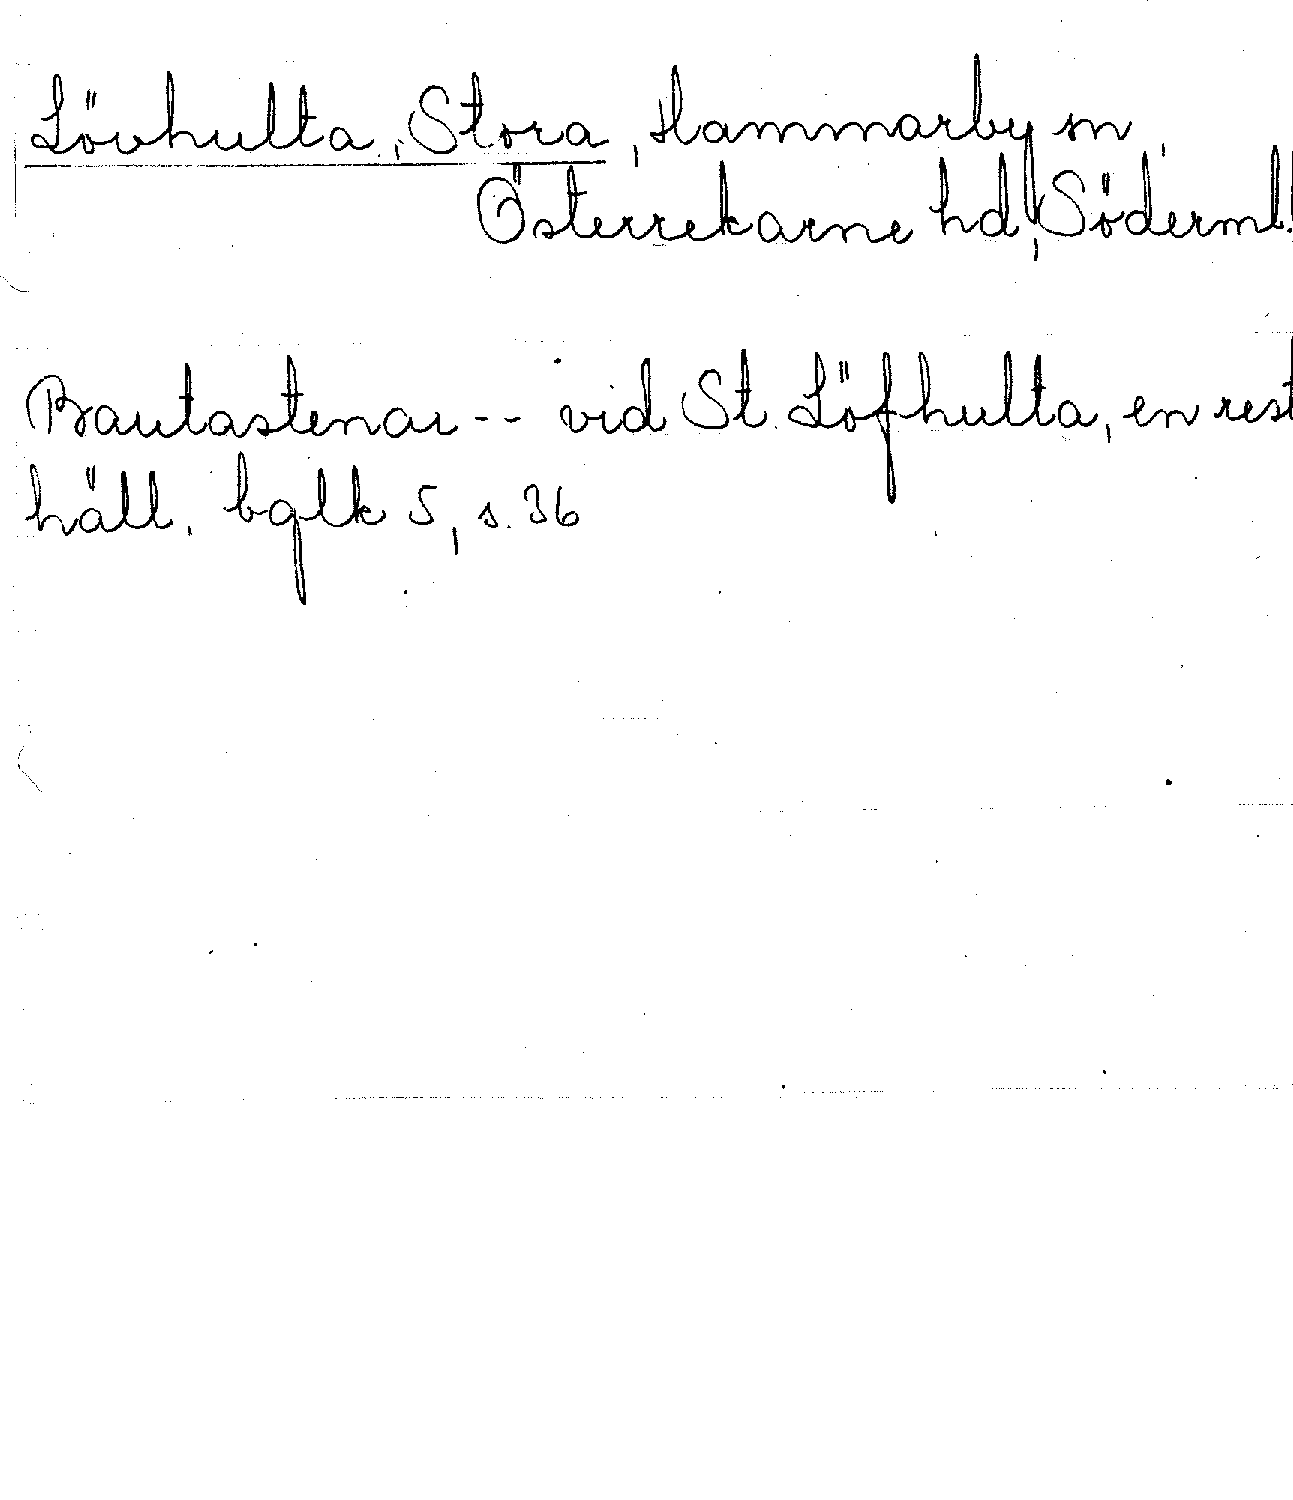 Lövhulta, Stora, Hammarby sn,
Österrekarne hd, Söderml.
Bautastenar -- vid St. Löfhulta, en rest
häll. bglk 5, s. 36